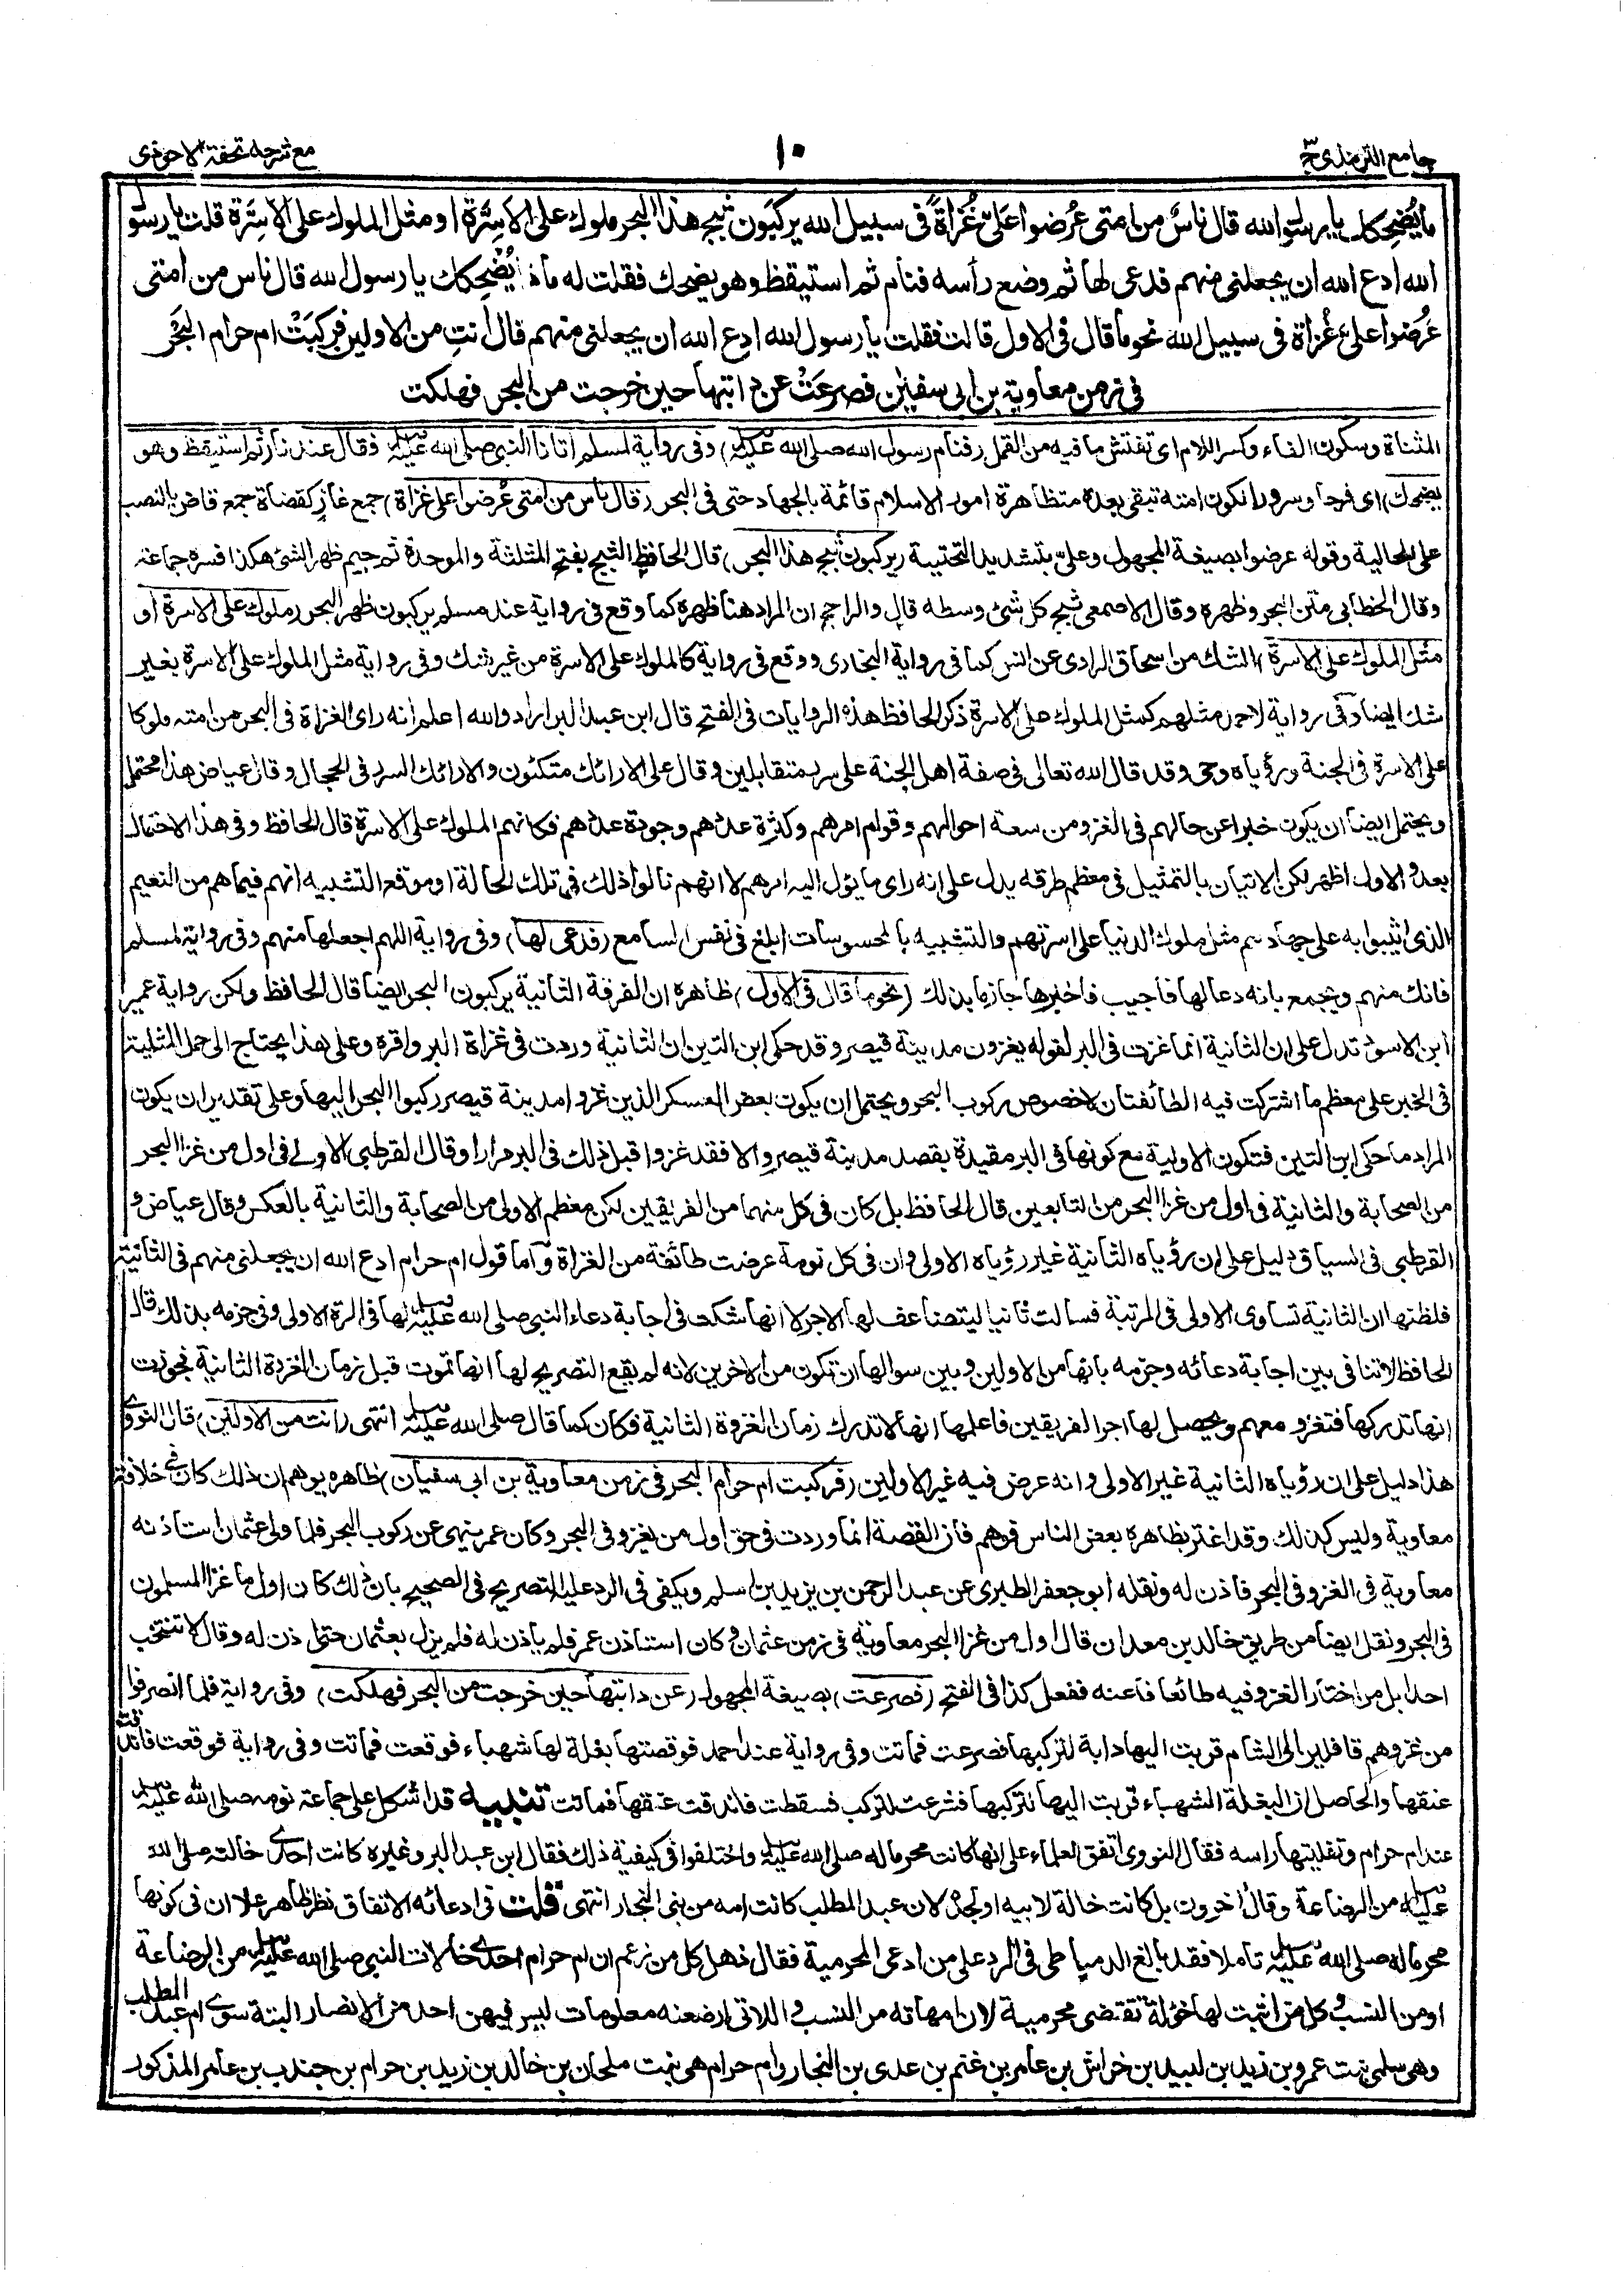 جامع الترمذى ج٣
١٠
مع شرحه تحفة الاحوذى
ما يُضحِكك يا رسول الله قال ناسٌ من امتى عُرضوا عَلىّ غُزاةً فى سبيل الله يركَبون ثبج هذا البحر ملوك على الاسِرَّة او مثل الملوك على الاسِرَّة قلت يا رسول
الله ادع الله ان يجعلنى منهم فدعى لها ثم وضع رأسه فنام ثم استيقظ وهو يضحك فقلت له ماذا يُضْحِكك يا رسول الله قال ناس من امتى
عُرضوا علىّ غُزاة فى سبيل الله نحو ما قال فى الاول قالت فقلت يا رسول الله ادع الله ان يجعلنى منهم قال أنتِ من الاولين فركبَتْ ام حرام البَحر
فى زمن معاوية بن ابى سفيٰن فصُرعَتْ عن دابتها حين خرجت من البحر فهلكت
المثناة وسكون الفاء وكسر اللام اى تفتش ما فيه من القمل (فنام رسول الله صلى الله عليه وسلم) وفى رواية لمسلم اتانا النبى صلى الله عليه وسلم فقال عندنا (ثم استيقظ وهو
يضحك) اى فرحا وسرورا لكون امته تبقى بعده متظاهرة امور الاسلام قائمة بالجهاد حتى فى البحر (قال ناس من امتى عُرضوا على غزاة) جمع غازٍ كقضاة جمع قاض بالنصب
على الحالية وقوله عرضوا بصيغة المجهول وعلىّ بتشديد التحتية (يركبون ثبج هذا البحر) قال الحافظ الثبج بفتح المثلثة والموحدة ثم جيم ظهر الشئ هكذا فسره جماعة
وقال الخطابى متن البحر وظهره وقال الاصمعى ثبج كل شئ وسطه قال والراجح ان المراد هنا ظهره كما وقع فى رواية عند مسلم يركبون ظهر البحر (ملوك على الاسرة او
مثل الملوك على الاسرة) الشك من اسحاق الراوى عن انس كما فى رواية البخارى ووقع فى رواية كالملوك على الاسرة من غير شك وفى رواية مثل الملوك على الاسرة بغير
شك ايضا وفى رواية لاحمد مثلهم كمثل الملوك على الاسرة ذكر الحافظ هذه الروايات فى الفتح قال ابن عبد البر اراد والله اعلم انه راى الغزاة فى البحر من امته ملوكا
على الاسرة فى الجنة ورؤياه وحى وقد قال الله تعالى فى صفة اهل الجنة على سرر متقابلين وقال على الارائك متكئون والارائك السرر فى الحجال وقال عياض هذا محتمل
ويحتمل ايضا ان يكون خبرا عن حالهم فى الغزو من سعة احوالهم وقوام امرهم وكثرة عددهم وجودة عددهم فكانهم الملوك على الاسرة قال الحافظ وفى هذا الاحتمال
بعد والاول اظهر لكن الاتيان بالتمثيل فى معظم طرقه يدل على انه راى ما يؤل اليه امرهم لا انهم نالوا ذلك فى تلك الحالة او موقع التشبيه انهم فيما هم من النعيم
الذى اثيبوا به على جهادهم مثل ملوك الدنيا على اسرتهم والتشبيه بالمحسوسات ابلغ فى نفس السامع (فدعى لها) وفى رواية اللهم اجعلها منهم وفى رواية لمسلم
فانك منهم ويجمع بانه دعا لها فاجيب فاخبرها جازما بذلك (نحو ما قال فى الاول) ظاهره ان الفرقة الثانية يركبون البحر ايضا قال الحافظ ولكن رواية عمير
ابن الاسود تدل على ان الثانية انما غزت فى البر لقوله يغزون مدينة قيصر وقد حكى ابن التين ان الثانية وردت فى غزاة البر واقره وعلى هذا يحتاج الى حمل المثلية
فى الخبر على معظم ما اشتركت فيه الطائفتان لا خصوص ركوب البحر ويحتمل ان يكون بعض العسكر الذين غزوا مدينة قيصر ركبوا البحر اليها وعلى تقدير ان يكون
المراد ما حكى ابن التين فتكون الاولية مع كونها فى البر مقيدة بقصد مدينة قيصر والا فقد غزوا قبل ذلك فى البر مرارا وقال القرطبى الاولى فى اول من غزا البحر
من الصحابة والثانية فى اول من غزا البحر من التابعين قال الحافظ بل كان فى كل منهما من الفريقين لكن معظم الاولى من الصحابة والثانية بالعكس وقال عياض و
القرطبى فى السياق دليل على ان رؤياه الثانية غير رؤياه الاولى وان فى كل نومة عرضت طائفة من الغزاة واما قول ام حرام ادع الله ان يجعلنى منهم فى الثانية
فلظنها ان الثانية تساوى الاولى فى المرتبة فسالت ثانيا ليتضاعف لها الاجر لا انها شكت فى اجابة دعاء النبى صلى الله عليه وسلم لها فى المرة الاولى وفى جزمه بذلك قال
الحافظ لا تنافى بين اجابة دعائه وجزمه بانها من الاولين وبين سوالها ان تكون من الاخرين لانه لم يقع التصريح لها انها تموت قبل زمان الغزوة الثانية فجوزت
انها تدركها فتغزو معهم ويحصل لها اجر الفريقين فاعلمها انها لا تدرك زمان الغزوة الثانية فكان كما قال صلى الله عليه وسلم انتهى (انت من الاولين) قال النووى
هذا دليل على ان رؤياه الثانية غير الاولى وانه عرض فيه غير الاولين (فركبت ام حرام البحر فى زمن معاوية بن ابى سفيان) ظاهره يوهم ان ذلك كان فى خلافة
معاوية وليس كذلك وقد اغتر بظاهره بعض الناس فوهم فان القصة انما وردت فى حق اول من يغزو فى البحر وكان عمر ينهى عن ركوب البحر فلما ولى عثمان استاذنه
معاوية فى الغزو فى البحر فاذن له ونقله ابو جعفر الطبرى عن عبد الرحمن بن يزيد بن اسلم ويكفى فى الرد عليه التصريح فى الصحيح بان ذلك كان اول ما غزا المسلمون
فى البحر ونقل ايضا من طريق خالد بن معدان قال اول من غزا البحر معاوية فى زمن عثمان وكان استاذن عمر فلم ياذن له فلم يزل بعثمان حتى اذن له وقال لا تنتخب
احدا بل من اختار الغزو فيه طائعا فاعنه ففعل كذا فى الفتح (فصرعت) بصيغة المجهول (عن دابتها حين خرجت من البحر فهلكت) وفى رواية فلما انصرفوا
من غزوهم قافلين الى الشام قربت اليها دابة لتركبها فصرعت فماتت وفى رواية عند احمد فوقصتها بغلة لها شهباء فوقعت فماتت وفى رواية فوقعت فاندقت
عنقها والحاصل ان البغلة الشهباء قربت اليها لتركبها فشرعت لتركب فسقطت فاندقت عنقها فماتت تنبيه قد اشكل على جماعة نومه صلى الله عليه وسلم
عند ام حرام وتفليتها راسه فقال النووى اتفق العلماء على انها كانت محرما له صلى الله عليه وسلم واختلفوا فى كيفية ذلك فقال ابن عبد البر وغيره كانت احدى خالته صلى الله
عليه وسلم من الرضاعة وقال اخرون بل كانت خالة لابيه او لجده لان عبد المطلب كانت امه من بنى النجار انتهى قلت فى ادعائه الاتفاق نظر ظاهر علا ان فى كونها
محرما له صلى الله عليه وسلم تاملا فقد بالغ الدمياطى فى الرد على من ادعى المحرمية فقال ذهل كل من زعم ان ام حرام احدى خالات النبى صلى الله عليه وسلم من الرضاعة
او من النسب وكل من اثبت لها خؤلة تقتضى محرمية لان امهاته من النسب واللاتى ارضعنه معلومات ليس فيهن احد من الانصار البتة سوى ام عبد المطلب
وهى سلمى بنت عمرو بن زيد بن لبيد بن خراش بن عامر بن غنم بن عدى بن النجار وام حرام هى بنت ملحان بن خالد بن زيد بن حرام بن جندب بن عامر المذكور